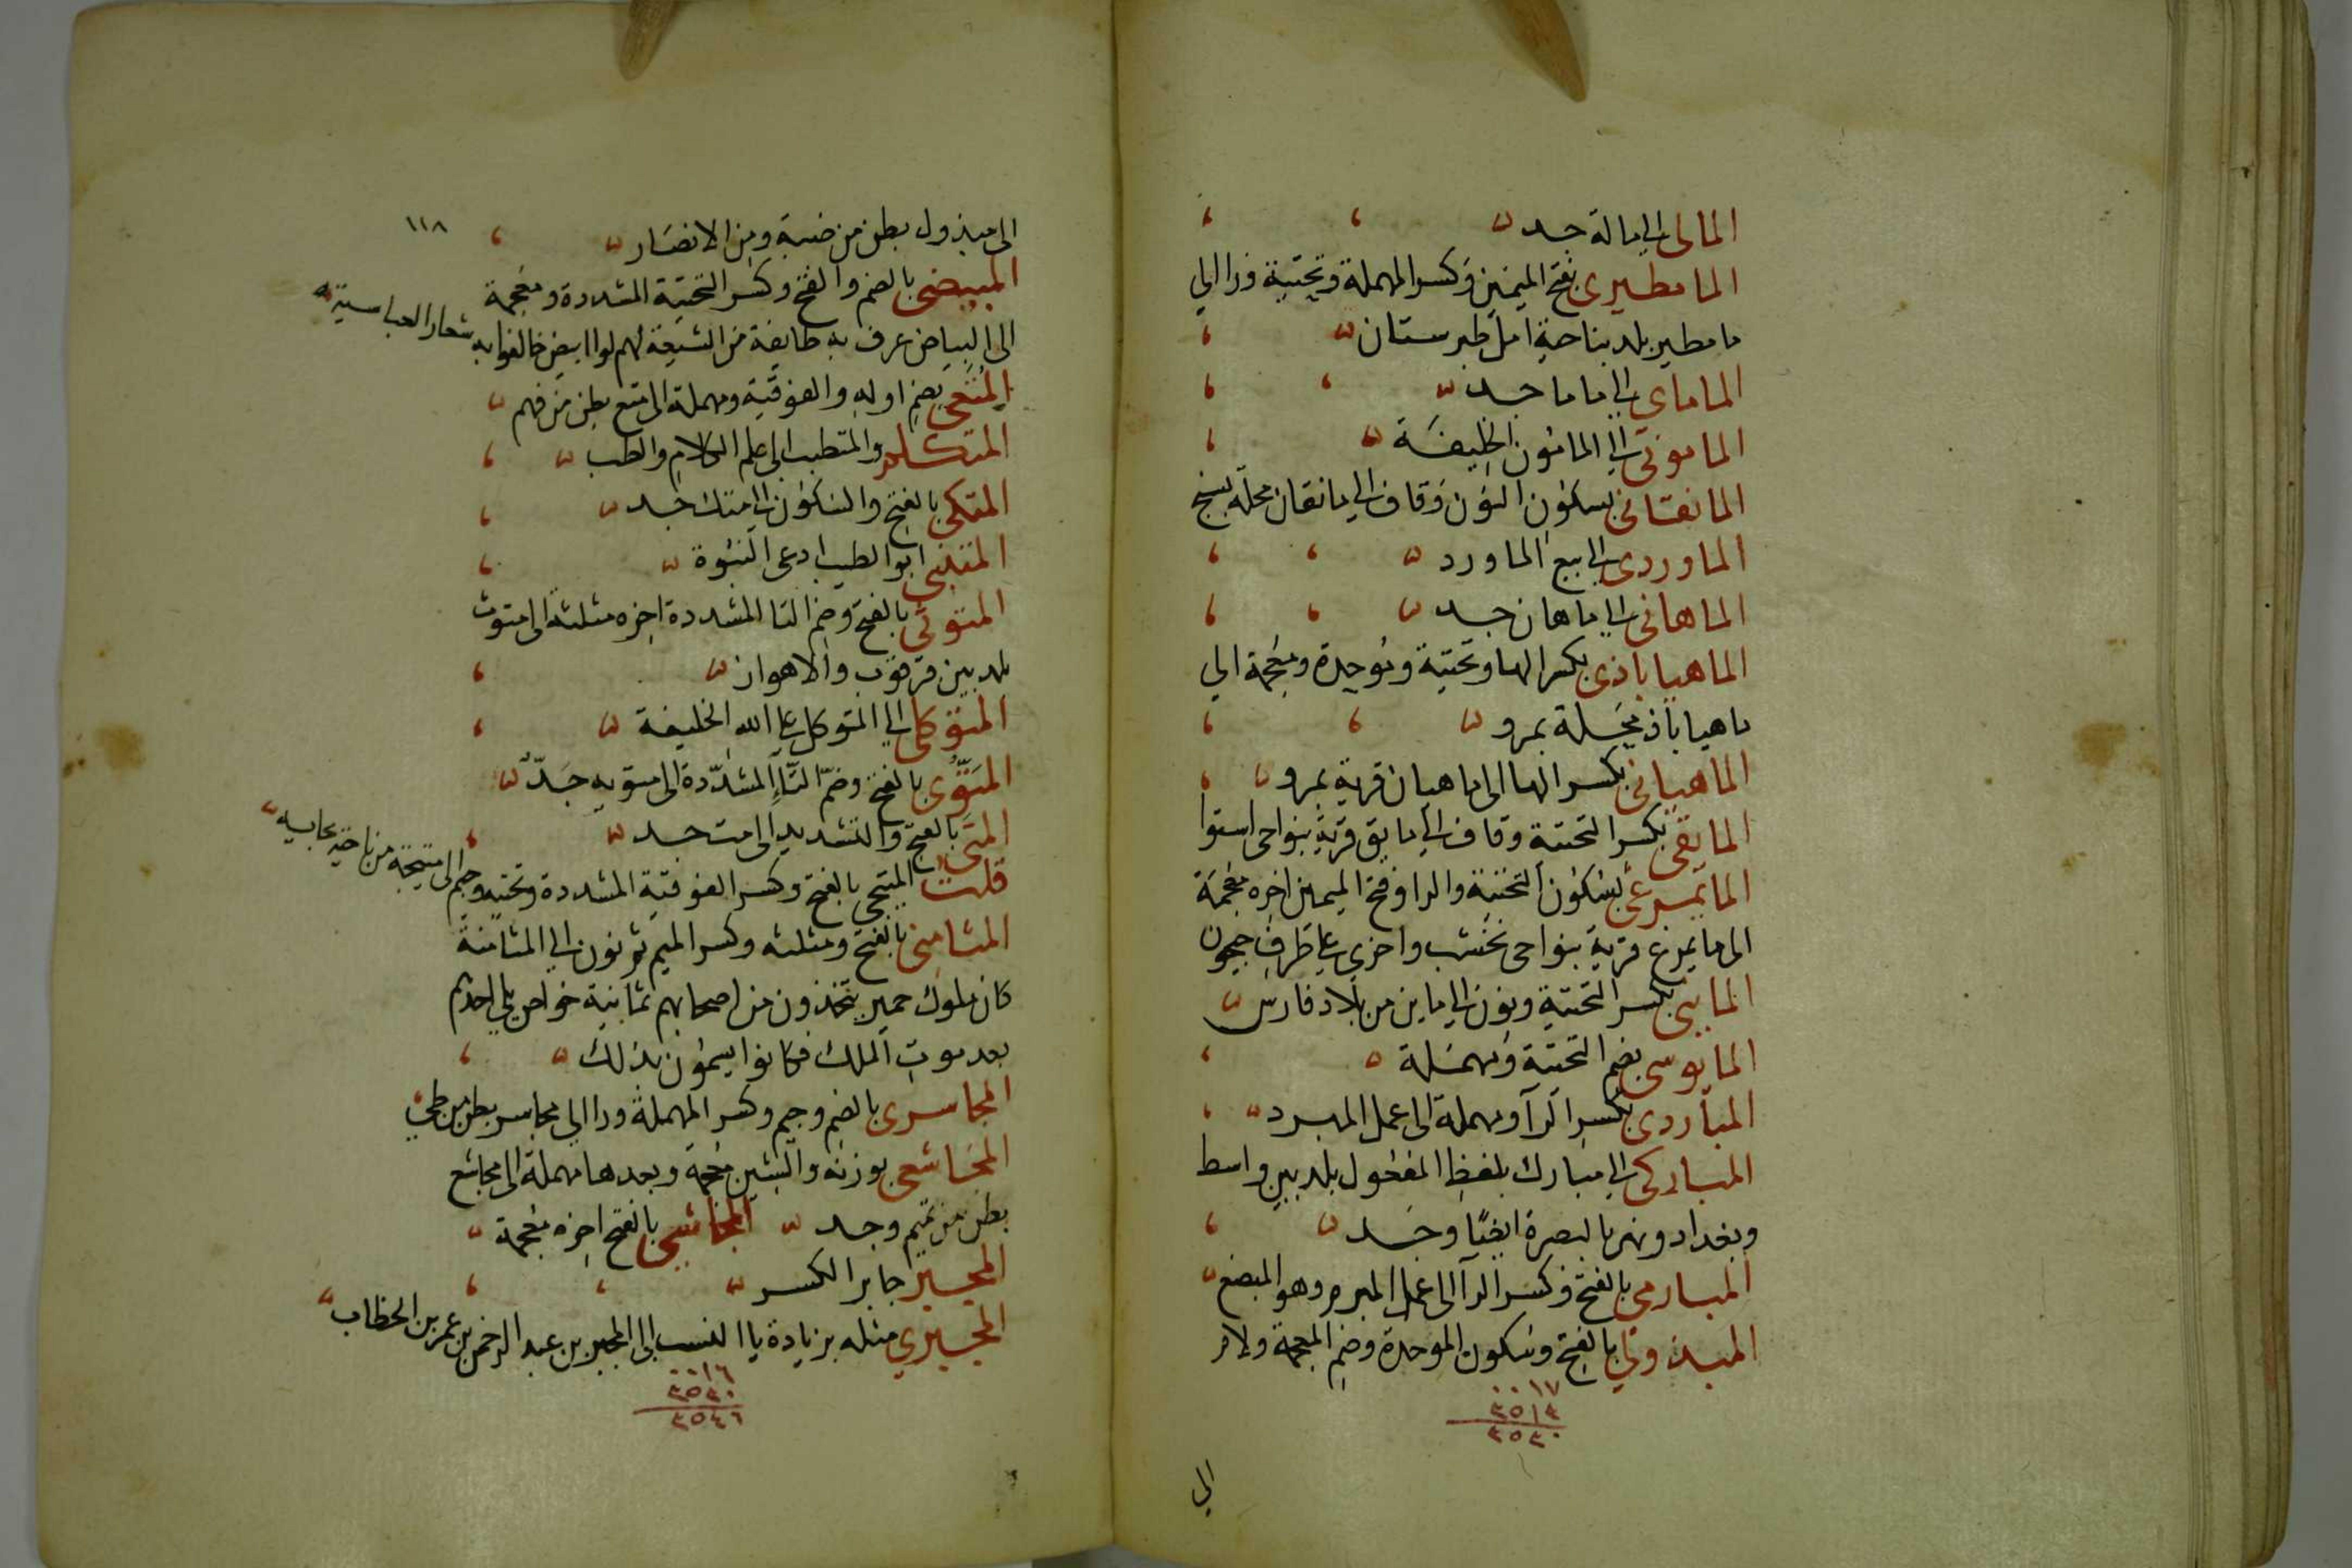 المالى الى مالة جد
المامطيرى بفتح الميمين وكسر المهملة وتحتية ورا الى
مامطير بلد بناحية امل طبرستان
الماماى الى ماما جد
المامونى الى المامون الخليفة
المانقانى بسكون النون وقاف الى مانقان محلة بسنج
الماوردى الى بيع الماورد
الماهانى الى ماهان جد
الماهياباذى بكسر الها وتحتية وموحدة ومعجمة الى
ماهياباذ محلة بمرو
الماهيانى بكسر الها الى ماهيان قرية بمرو
المايقى بكسر التحتية وقاف الى مايق قرية بنواحى استوا
المايمرغى بسكون التحتية والرا وفتح الميمين اخره معجمة
الى مايمرغ قرية بنواحى نخشب واخرى على طرف جيحون
المايينى بكسر التحتية ونون الى مايين من بلاد فارس
المايوسى بضم التحتية ومهملة
المباردى بكسر الرآ ومهملة الى عمل المبرد
المباركى الى مبارك بلفظ المفعول بلد بين واسط
وبغداد ونهر بالبصرة ايضًا وجد
المبارمى بالفتح وكسر الرآ الى عمل المبرم وهو المبضع
المبذولى بالفتح وسكون الموحدة وضم المعجمة ولام
٠٠١٧
٣٥١٣
٣٥٣٠
الى
١١٨
الى مبذول بطن من ضبة ومن الانصار
المبيضى بالضم والفتح وكسر التحتية المشددة ومعجمة
الى البياض عرف به طايفة من الشيعة لهم لوا ابيض خالفوا به شعار العباسية
المتعى بضم اوله والفوقية ومهملة الى متع بطن من فهم
المتكلم والمتطبب الى علم الكلام والطب
المتكى بالفتح والسكون الى متك جد
المتنبى ابو الطيب ادعى النبوة
المتوثى بالفتح وضم التا المشددة اخره مثلثة الى متوث
بلد بين قرقوب والاهواز
المتوكلى الى المتوكل على الله الخليفة
المَتُّوى بالفتح وضمّ التَّاءِ المشدّدة الى متويه جَدّ
المتى بالفتح والتشديد الى مت جد
قلت المتيجى بالفتح وكسر الفوقية المشددة وتحتيه وجيم الى متيجة من ناحية بجايه
المثامنى بالفتح ومثلثه وكسر الميم ثم نون الى المثامنة
كان ملوك حمير يتخذون من اصحابهم ثمانية خواص يلى احدهم
بعد موت الملك فكانوا يسمون بذلك
المجاسرى بالضم وجيم وكسر المهملة ورا الى مجاسر بطن من طى
المجاشعى بوزنه والشين معجمة وبعدها مهملة الى مجاشع
بطن من تميم وجد المجاشى بالفتح اخره معجمة
المجبر جابر الكسر
المجبرى مثله بزيادة يا النسب الى المجبر بن عبد الرحمن بن عمر بن الخطاب
٠٠١٦
٣٥٣٠
٣٥٤٦